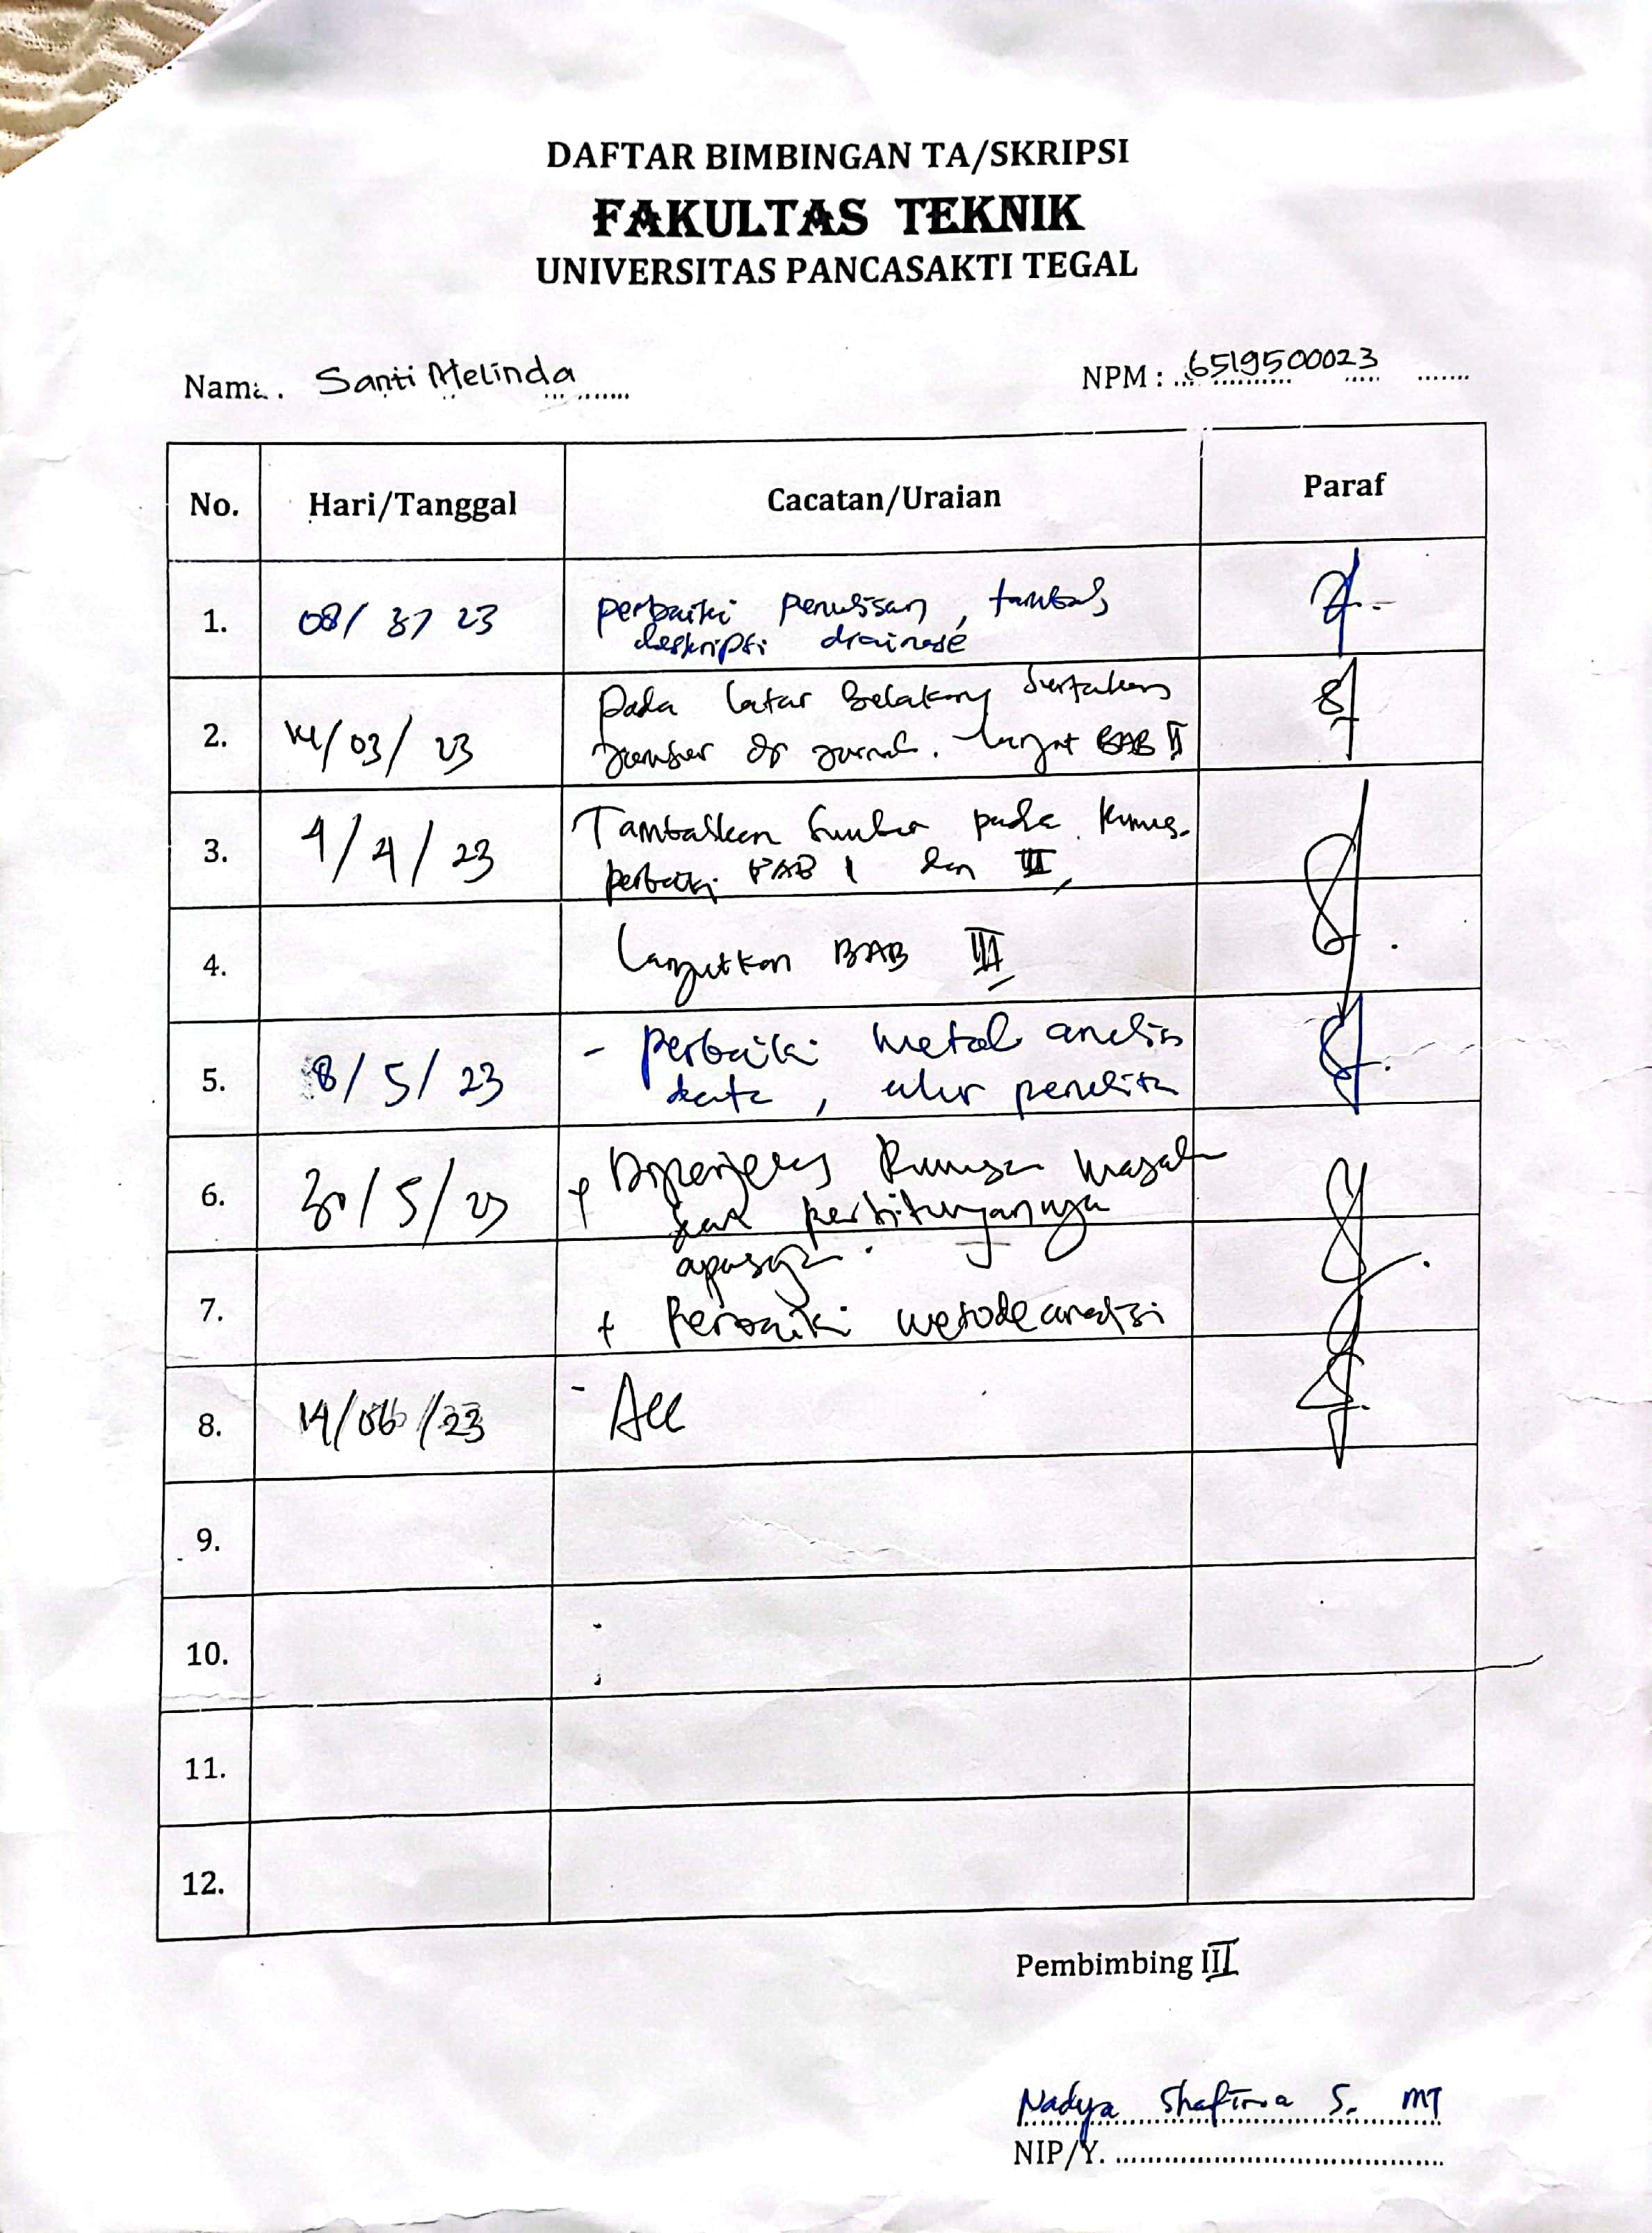 DAFTAR BIMBINGAN TA/SKRIPSI
FAKULTAS TEKNIK
UNIVERSITAS PANCASAKTI TEGAL
Nama. Santi Melinda
NPM : 6519500023
No. Hari/Tanggal Cacatan/Uraian Paraf
1. 08/ 3/ 23 perbaiki penulisan, tambah
deskripsi drainase
2. 14/03/ 23 Pada latar Belakang sertakan
sumber dr jurnal. lanjut BAB II
3. 4/4/23 Tambahkan Sumber pada rumus.
perbaiki BAB I dan II
4. Lanjutkan BAB III
5. 8/5/23 - perbaiki metode analisis
data, alur penelitn
6. 30/5/23 + Diperjelas Rumusan Masalah
perhitungannya
apasaja.
7. + Perbaiki metode analisi
8. 14/06/23 - Acc
9.
10.
11.
12.
Pembimbing III
Nadya Shafira S. MT
NIP/Y.